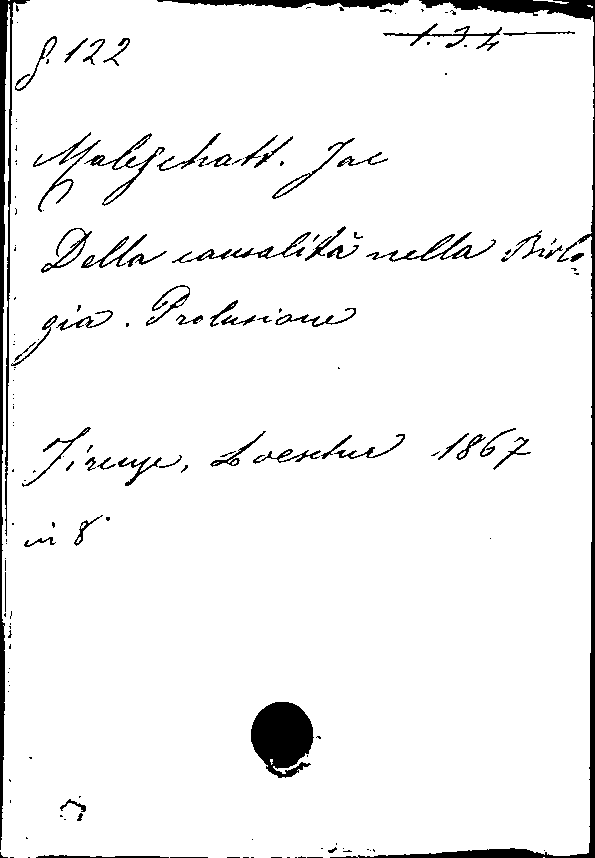 g. 122
1. 3. 4
Moleschott. Jac
Della causalità nella Biolo-
gia. Prolusione
Firenze, Loescher 1867
in 8°